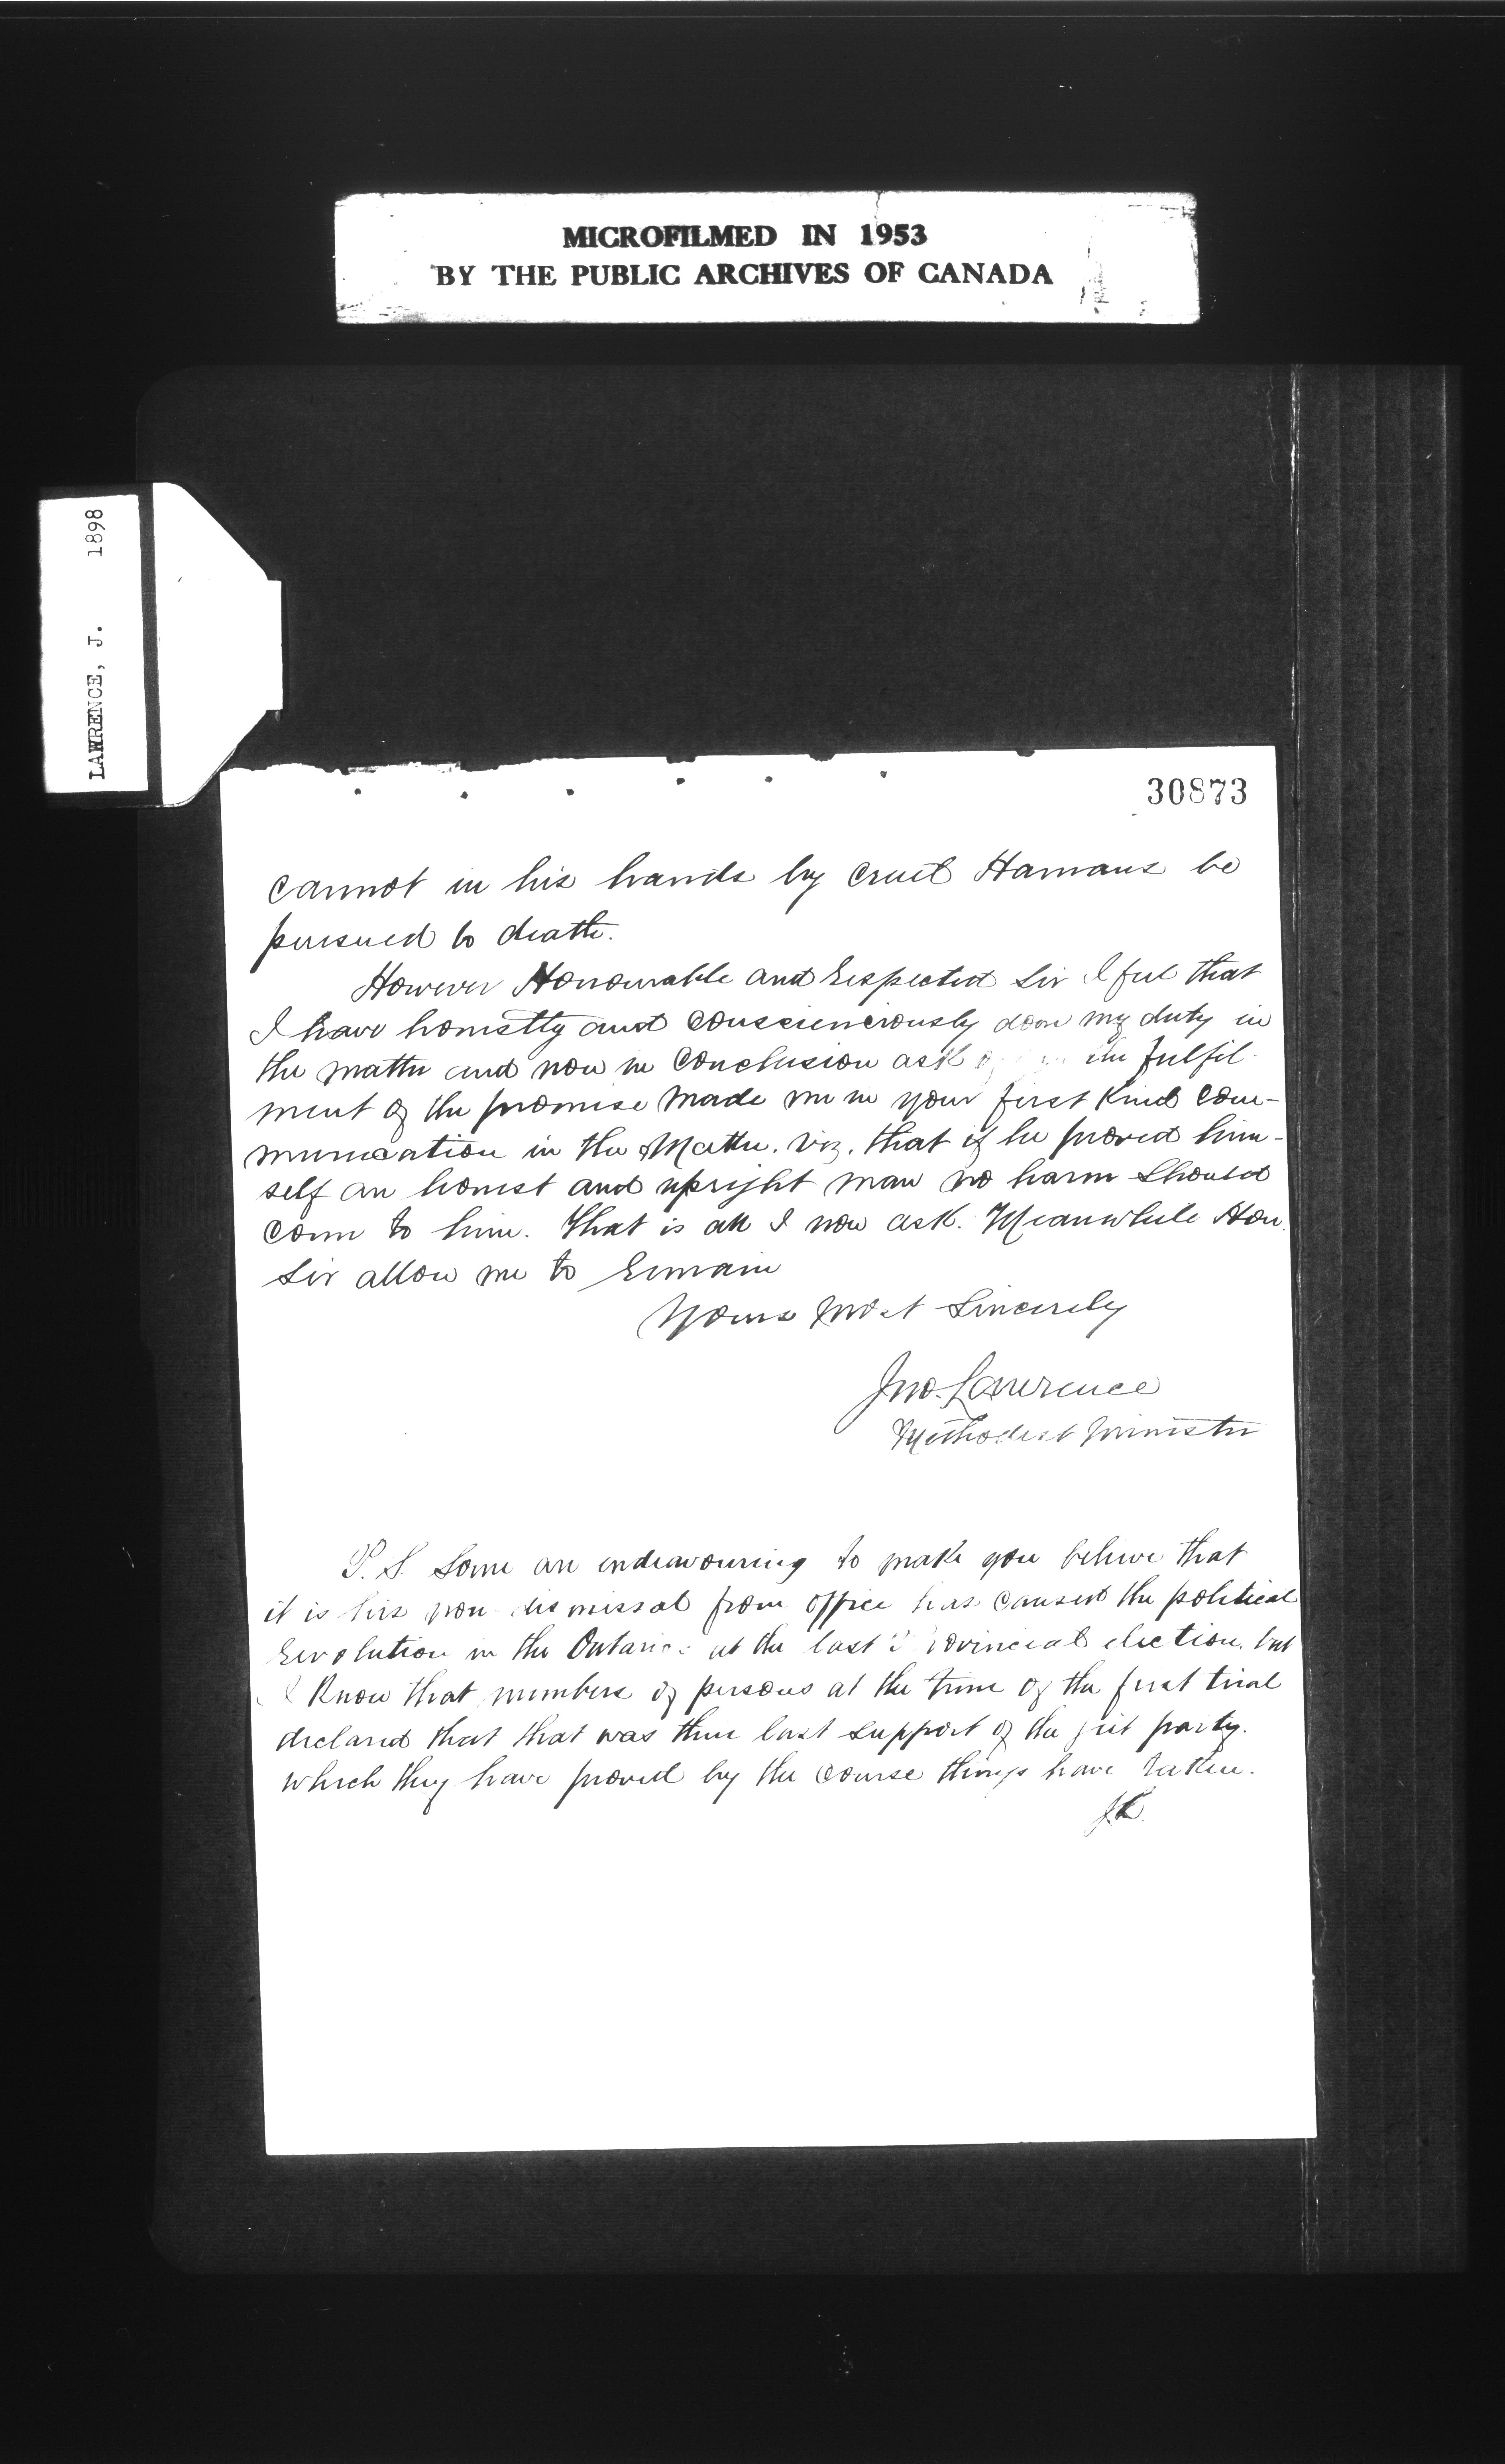 MICROFILMED IN 1953
BY THE PUBLIC ARCHIVES OF CANADA
LAWRENCE, J. 1898
30873
cannot in his hands by cruel Hamans be
pursued to death.
However Honourable and respected Sir I feel that
I have honestly and consciencously done my duty in
the matter and now in conclusion ask the fulfil-
ment of the promise made me in your first kind com-
munication in the Matter. viz. that if he proved him-
self an honest and upright man no harm should
come to him. That is all I now ask. Meanwhile Hon.
Sir allow me to remain
Yours Most Sincerely
Jno. Lawrence
Methodist Minister
P.S. Some are endeavouring to make you believe that
it is his non-dismissal from office has caused the political
revolution in the at the last Provincial election. but
I know that numbers of persons at the time of the first trial
declared that that was their last support of the party.
which they have proved by the course things have taken.
J.L.